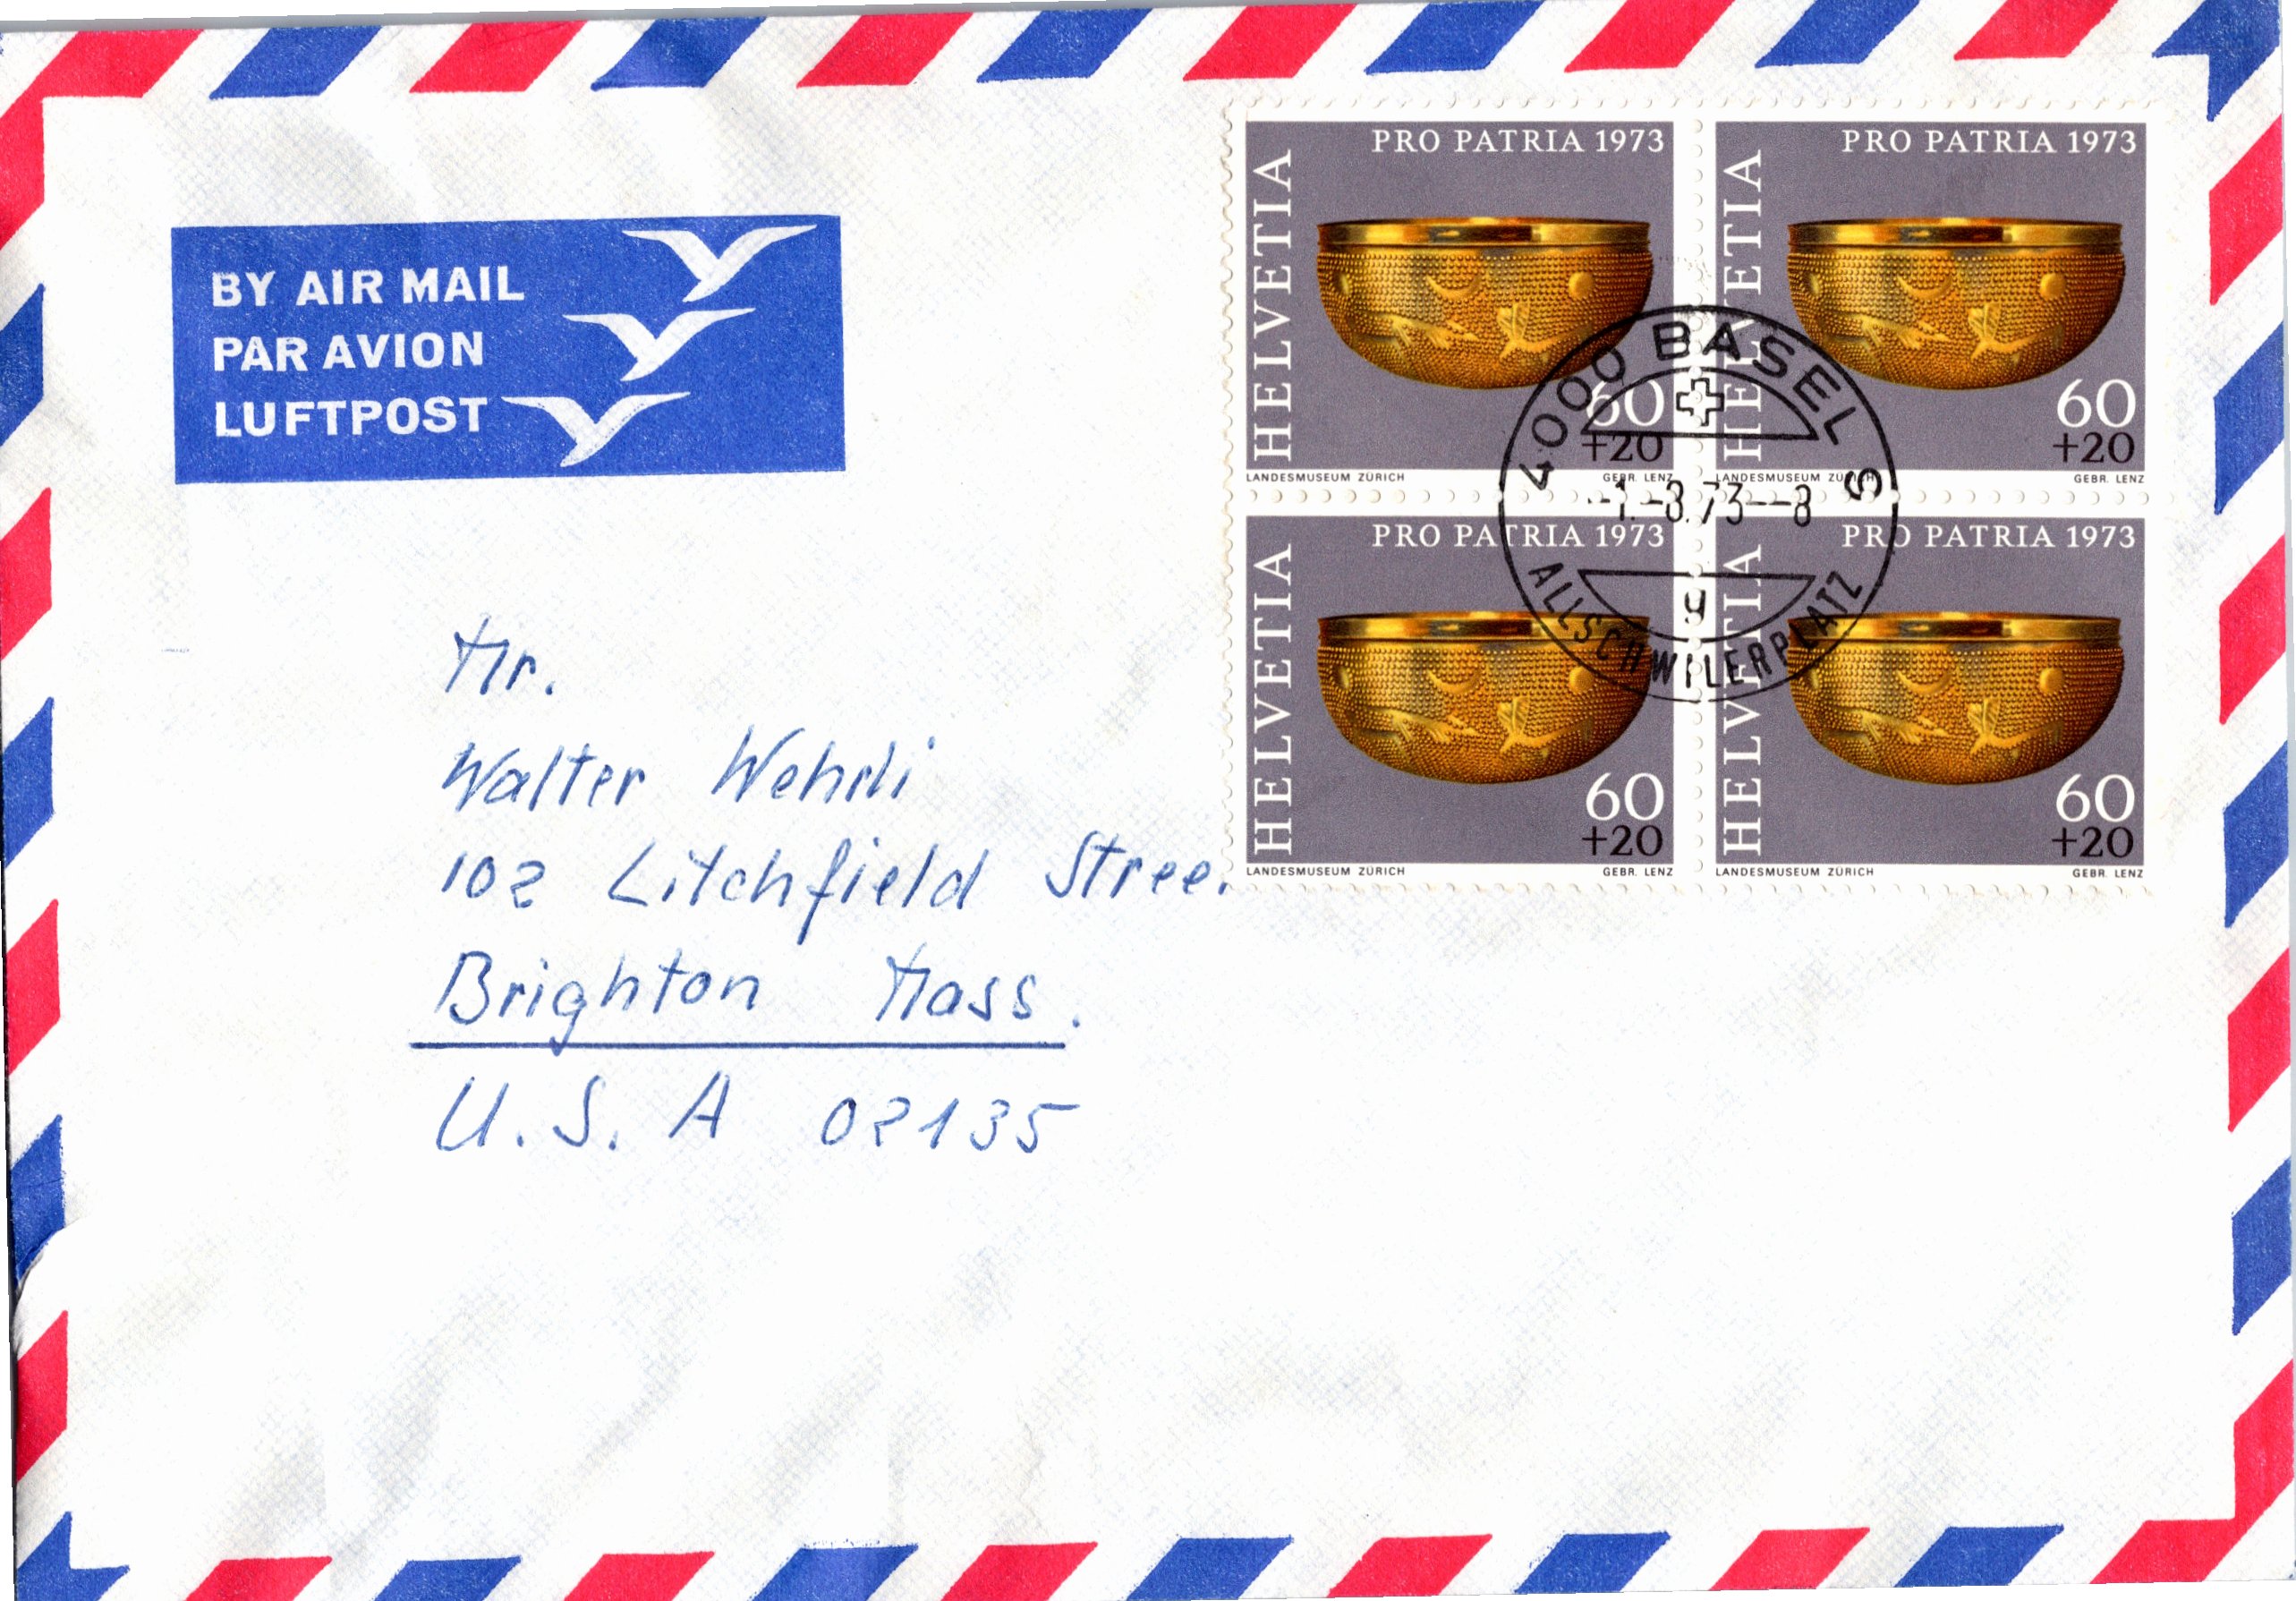 BY AIR MAIL
PAR AVION
LUFTPOST
PRO PATRIA 1973
HELVETIA
60
+20
LANDESMUSEUM ZÜRICH GEBR. LENZ
PRO PATRIA 1973
HELVETIA
60
+20
LANDESMUSEUM ZÜRICH GEBR. LENZ
PRO PATRIA 1973
HELVETIA
60
+20
LANDESMUSEUM ZÜRICH GEBR. LENZ
PRO PATRIA 1973
HELVETIA
60
+20
LANDESMUSEUM ZÜRICH GEBR. LENZ
4000 BASEL 9
-1.-8.73--8
g
ALLSCHWILERPLATZ
Mr.
Walter Wehrli
102 Litchfield Stree
Brighton Mass.
U.S.A 02135